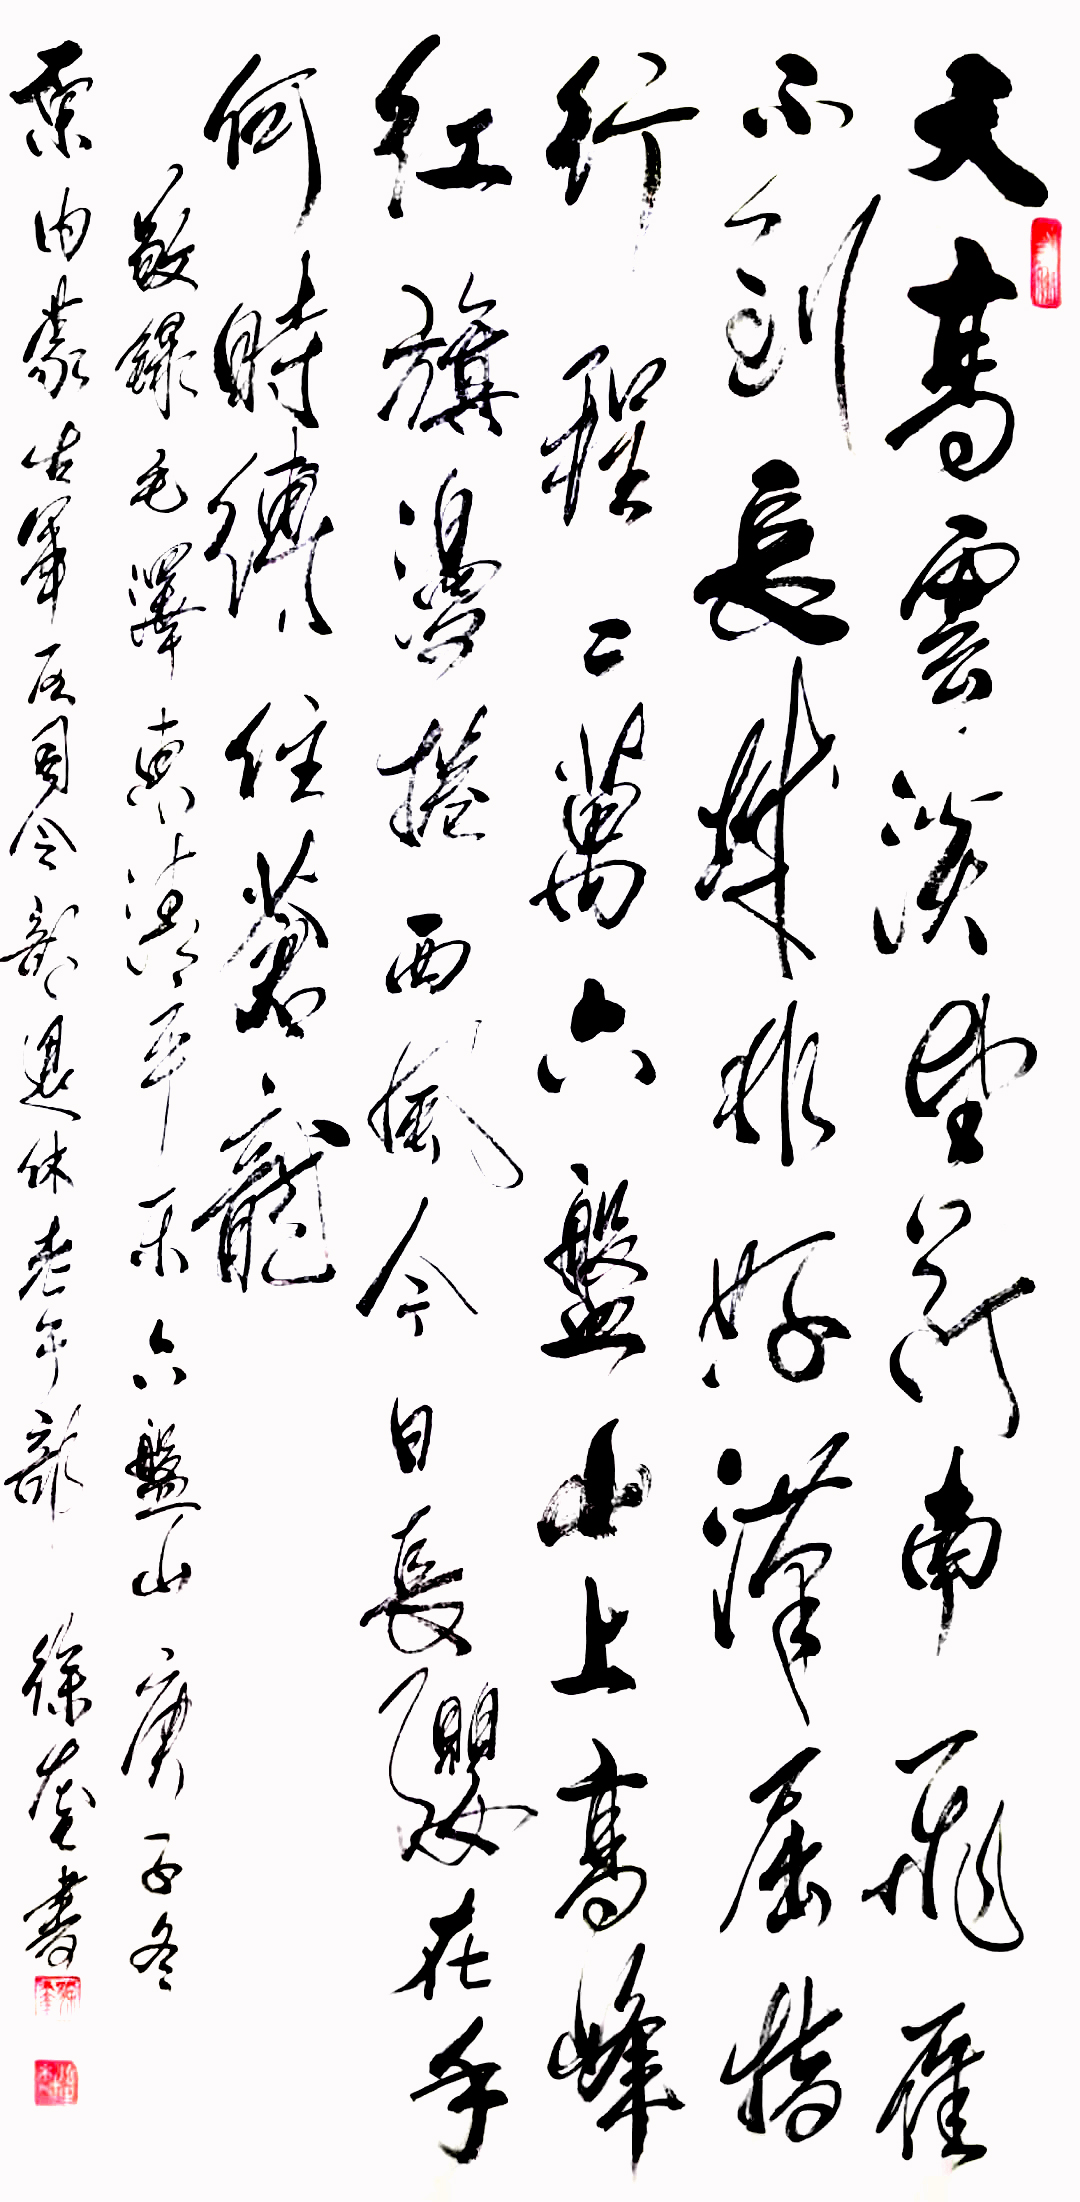 天高雲淡望斷南飛雁
不到長城非好漢屈指
行程二萬六盤山上高峰
紅旗漫捲西風今日長纓在手
何時縛住蒼龍
敬錄毛澤東清平樂六盤山 庚子冬
内蒙古軍区司令部退休老干部 徐書